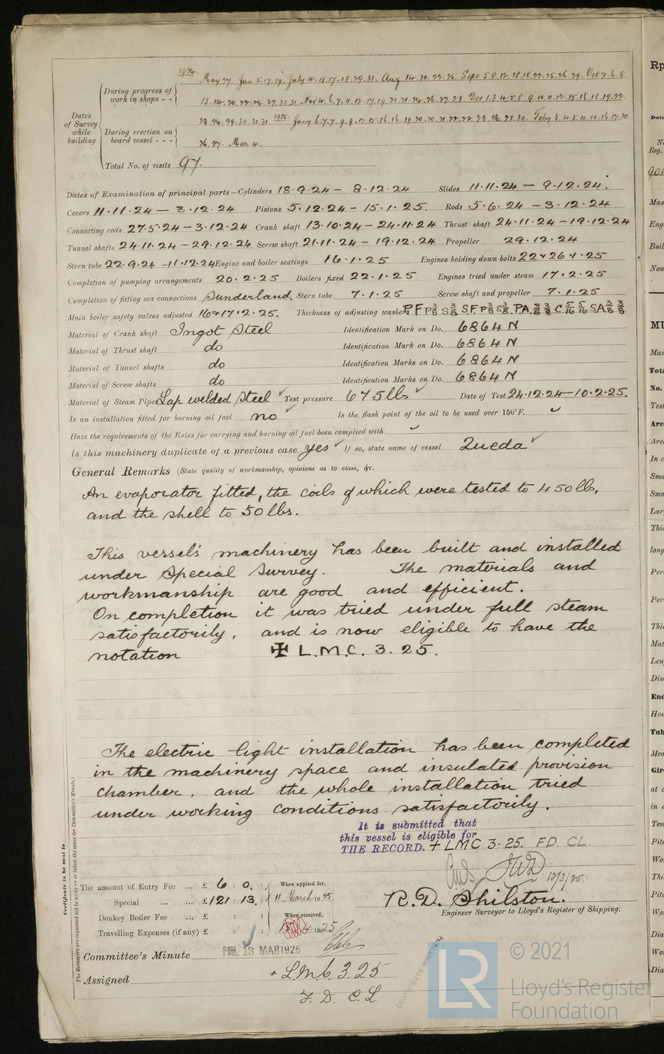 During progress of work in shops - -
1924 May 27 Jun 5.17.19 July 4.15.17.18 29.31. Aug 14.20.22.26 Sept 5.8.12.18.18.22.25.26.29. Oct 2.6.8.
Dates of Survey while building
During erection on board vessel - - -
26.27. Mar 4.
Total No. of visits 97.
Dates of Examination of principal parts—Cylinders 18.9.24 — 8.12.24 Slides 11.11.24 — 9.12.24.
Covers 11.11.24 — 3.12.24 Pistons 5.12.24 — 15.1.25. Rods 5.6.24 — 3.12.24
Connecting rods 27.5.24 — 3.12.24 Crank shaft 13.10.24 — 24.11.24 Thrust shaft 24.11.24 — 19.12.24
Tunnel shafts 24.11.24 — 29.12.24 Screw shaft 21.11.24 — 19.12.24 Propeller 29.12.24
Stern tube 22.9.24 — 11.12.24 Engine and boiler seatings 16.1.25 Engines holding down bolts 22 & 26.1.25
Completion of pumping arrangements 20.2.25 Boilers fixed 22.1.25 Engines tried under steam 17.2.25
Completion of fitting sea connections Sunderland Stern tube 7.1.25 Screw shaft and propeller 7.1.25
Main boiler safety valves adjusted 16 & 17.2.25. Thickness of adjusting washers
Material of Crank shaft Ingot Steel Identification Mark on Do. 6864N
Material of Thrust shaft do Identification Mark on Do. 6864N
Material of Tunnel shafts do Identification Marks on Do. 6864N
Material of Screw shafts do Identification Marks on Do. 6864N
Material of Steam Pipes Lap welded Steel ✓ Test pressure 675 lbs ✓ Date of Test 24.12.24—10.2.25.
Is an installation fitted for burning oil fuel no ✓ Is the flash point of the oil to be used over 150°F. ✓
Have the requirements of the Rules for carrying and burning oil fuel been complied with ✓
Is this machinery duplicate of a previous case yes ✓ If so, state name of vessel Queda ✓
General Remarks (State quality of workmanship, opinions as to class, &c.
An evaporator fitted, the coils of which were tested to 450 lbs,
and the shell to 50 lbs.
This vessel's machinery has been built and installed
under Special Survey. The materials and
workmanship are good and efficient.
On completion it was tried under full steam
satisfactorily, and is now eligible to have the
notation ✠ L.M.C. 3.25.
The electric light installation has been completed
in the machinery space and insulated provision
chamber, and the whole installation tried
under working conditions satisfactorily.
It is submitted that
this vessel is eligible for
THE RECORD. + LMC 3.25. FD. CL
12/3/25.
The amount of Entry Fee ... £ 6 : 0 : When applied for,
Special ... ... £ 121 : 13 : 11 March 1925
Donkey Boiler Fee ... £ : : When received,
Travelling Expenses (if any) £ : : 1925
R.D. Shilston.
Engineer Surveyor to Lloyd's Register of Shipping.
Committee's Minute 13 MAR 1925
Assigned + LMC 3.25
F.D. C.L.
Certificate to be sent to
The Surveyors are requested not to write on or below the space for Committee's Minute.
© 2021
LR
Lloyd's Register
Foundation